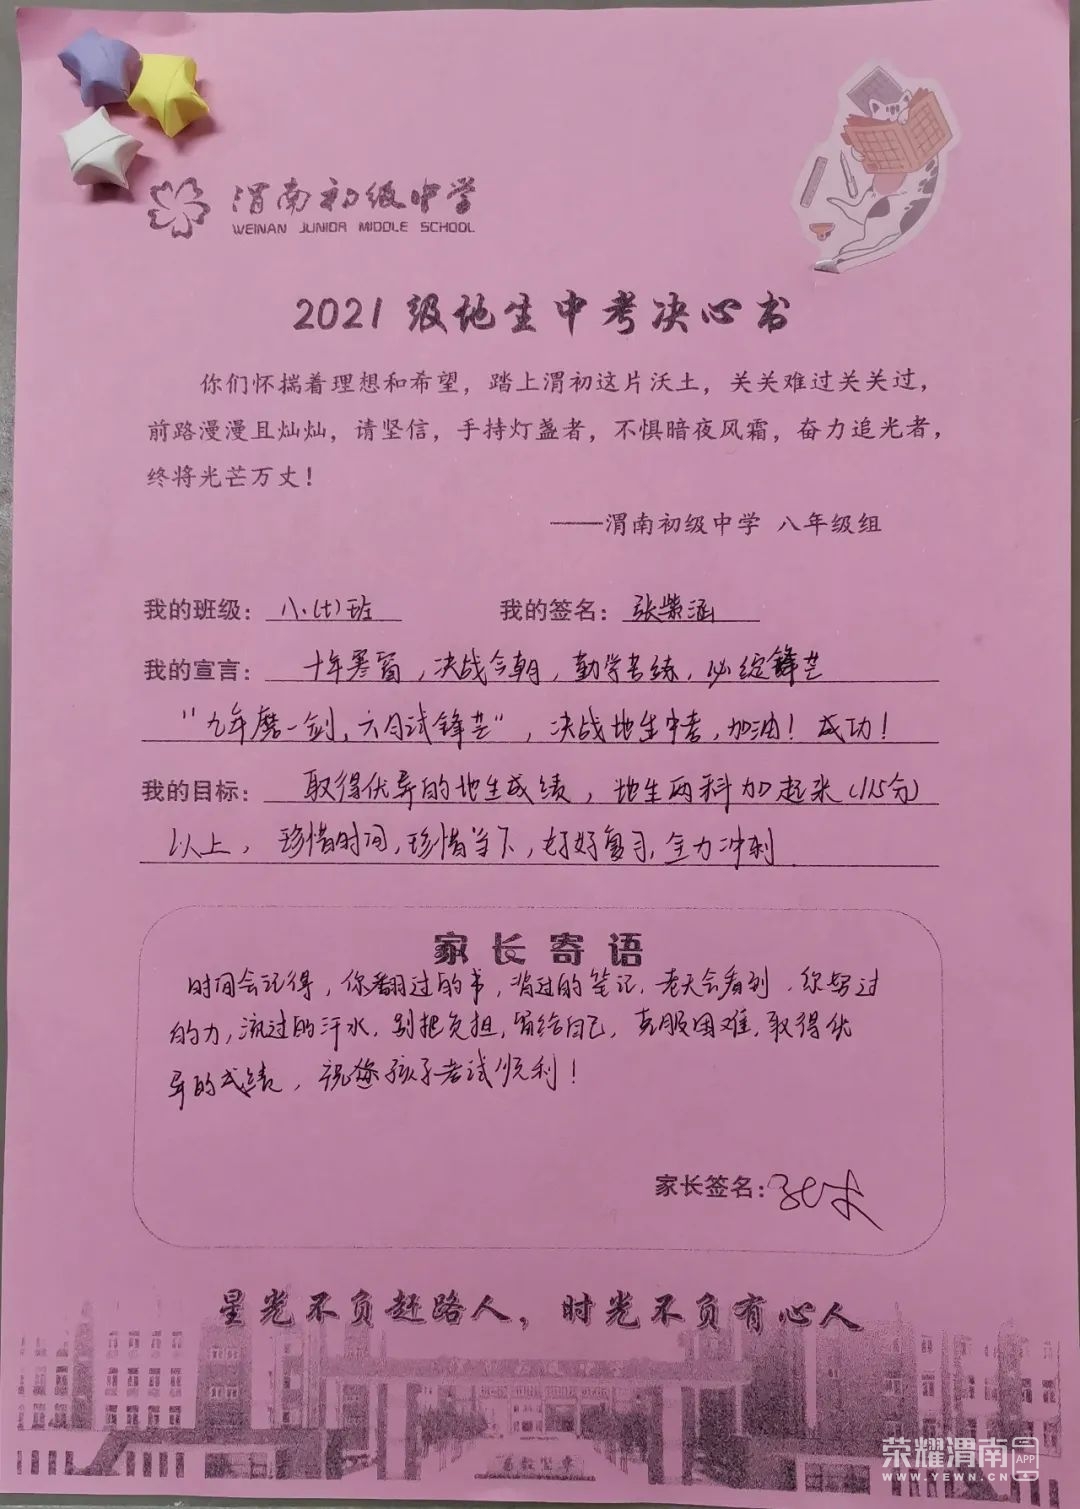 渭南初级中学
WEINAN JUNIOR MIDDLE SCHOOL
2021级地生中考决心书
你们怀揣着理想和希望，踏上渭初这片沃土，关关难过关关过，
前路漫漫且灿灿，请坚信，手持灯盏者，不惧暗夜风霜，奋力追光者，
终将光芒万丈！
——渭南初级中学 八年级组
我的班级：八.(七)班 我的签名：张紫涵
我的宣言：十年寒窗，决战今朝，勤学苦练，必绽锋芒
“九年磨一剑，六月试锋芒”，决战地生中考，加油！成功！
我的目标：取得优异的地生成绩，地生两科加起来(115分)
以上，珍惜时间，珍惜当下，好好复习，全力冲刺
家长寄语
时间会记得，你翻过的书，背过的笔记，老天会看到，你努过
的力，流过的汗水，别把负担，留给自己，克服困难，取得优
异的成绩，祝您孩子考试顺利！
家长签名：
星光不负赶路人，时光不负有心人
荣耀渭南APP
WWW.YEWN.CN